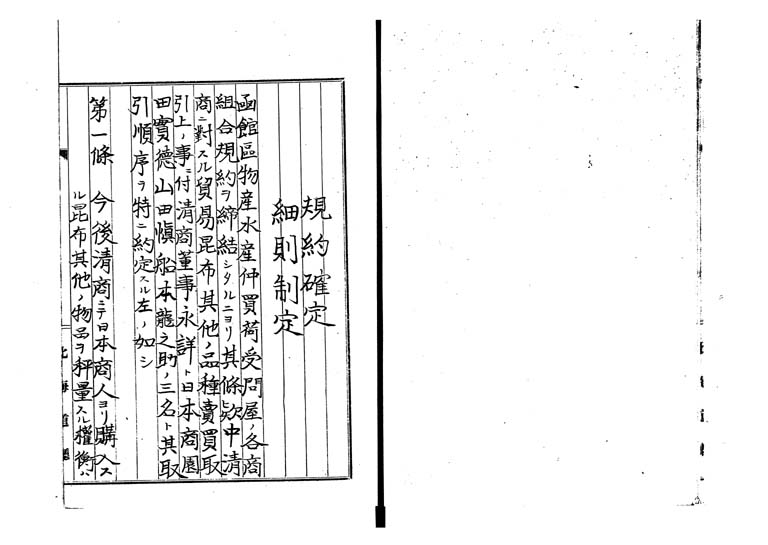 規約確定
細則制定
函館區物産水産仲買荷受問屋ノ各商
組合規約ヲ締結シタルニヨリ其條欵中清
商ニ對スル貿易昆布其他ノ品種賣買取
引上ノ事ニ付清商董事永詳ト日本商園
田實德山田愼船本龍之助ノ三名ト其取
引順序ヲ特ニ約定スル左ノ如シ
第一條 今後清商ニテ日本商人ヨリ購入ス
ル昆布其他ノ物品ヲ秤量スル權衡ハ
北海道